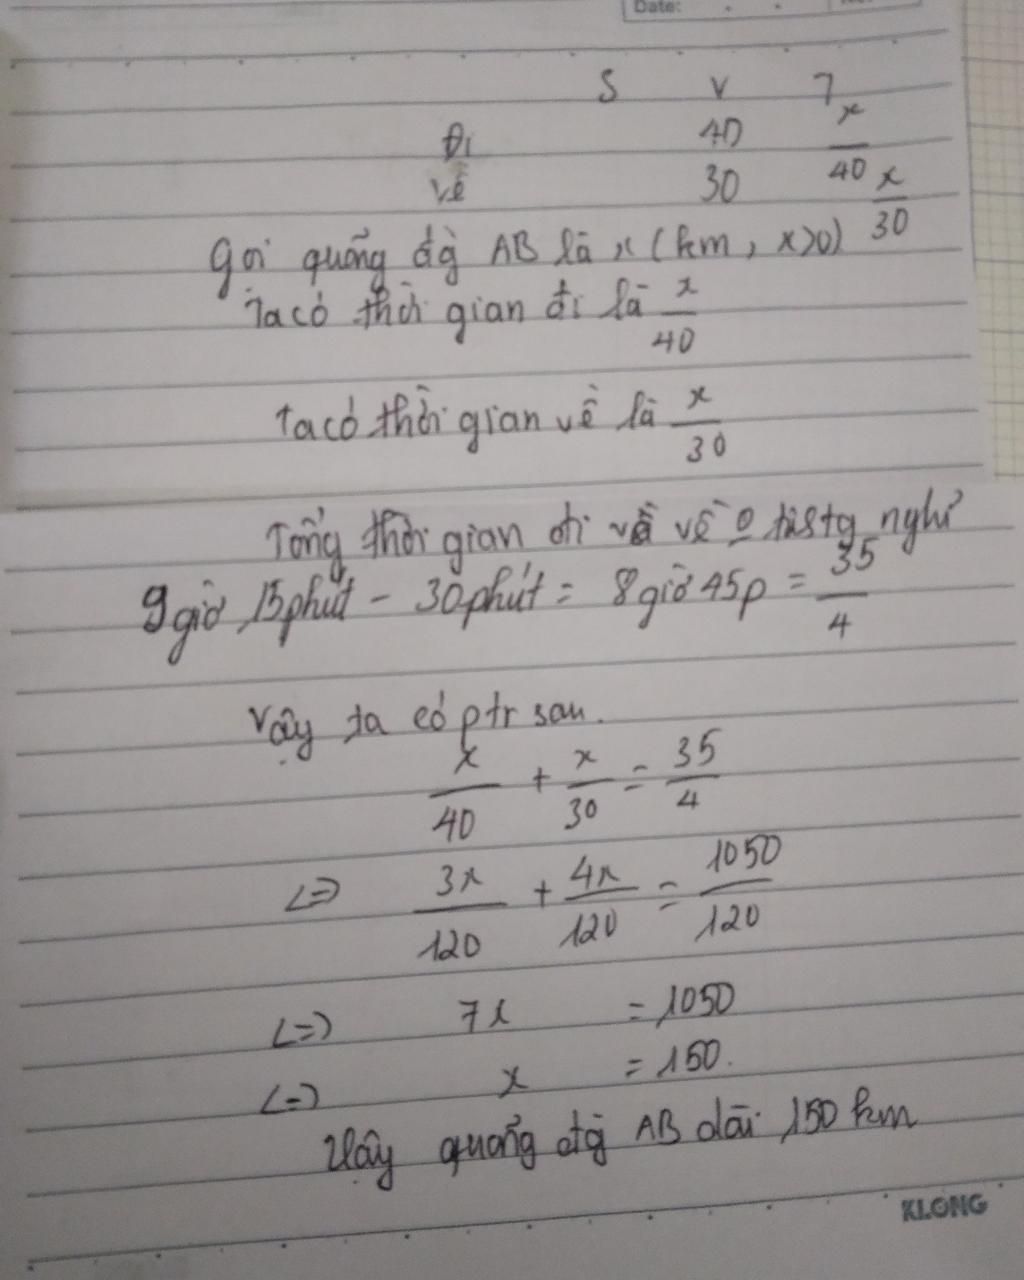 Date:
S V T
Đi 40 x/40
về 30 x/30
Gọi quãng đg AB là x (km, x>0)
Ta có thời gian đi là x/40
Ta có thời gian về là x/30
Tổng thời gian đi và về nghỉ
9 giờ 15 phút - 30 phút = 8 giờ 45p = 35/4
Vậy ta có ptr sau.
x/40 + x/30 = 35/4
<=> 3x/120 + 4x/120 = 1050/120
<=> 7x = 1050
<=> x = 150.
Vậy quãng đg AB dài 150 km
KLONG